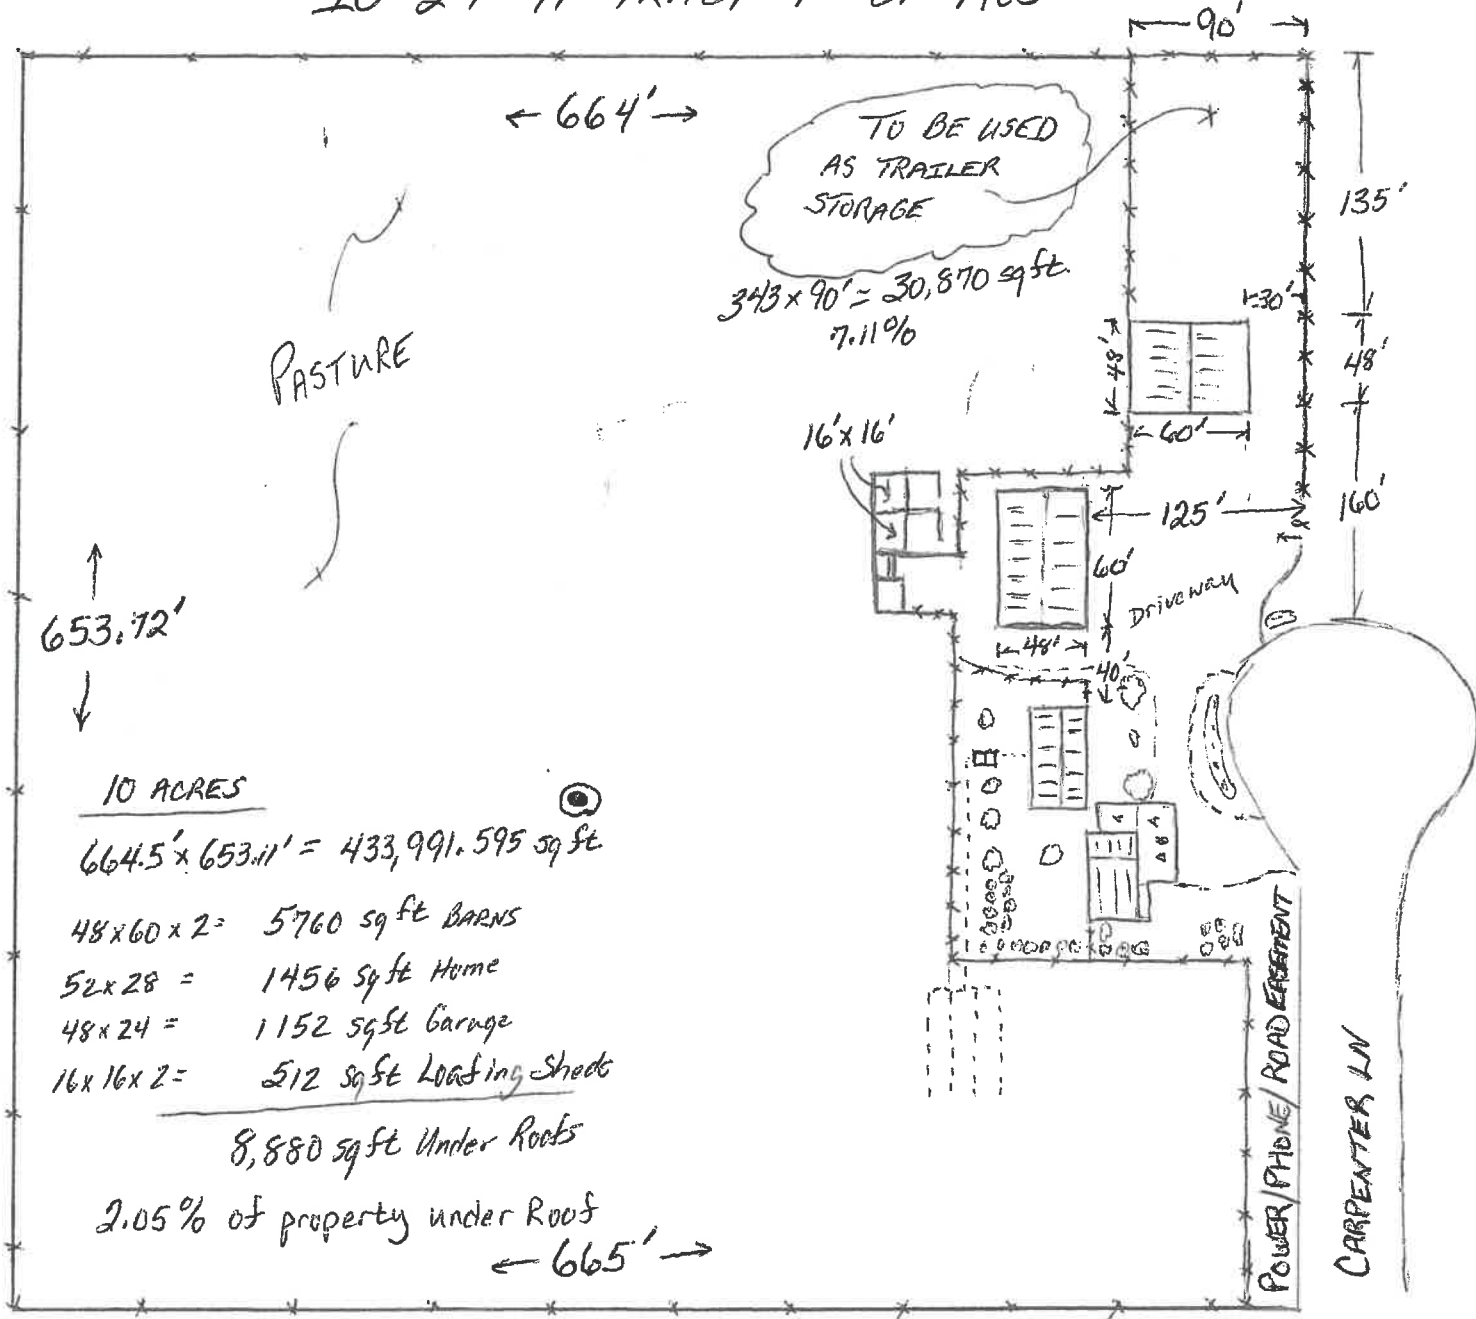 90'
← 664' →
TO BE USED
AS TRAILER
STORAGE
343 x 90' = 30,870 sq ft.
7.11%
135'
30'
48'
48'
60'
PASTURE
16' x 16'
125'
160'
60'
Driveway
653.72'
48'
40'
10 ACRES
664.5' x 653.11' = 433,991.595 sq ft.
48 x 60 x 2 = 5760 sq ft BARNS
52 x 28 = 1456 sq ft Home
48 x 24 = 1152 sq ft Garage
16 x 16 x 2 = 512 sq ft Loafing Sheds
8,880 sq ft Under Roofs
2.05% of property under Roof
← 665' →
POWER/PHONE/ROAD EASEMENT
CARPENTER LN